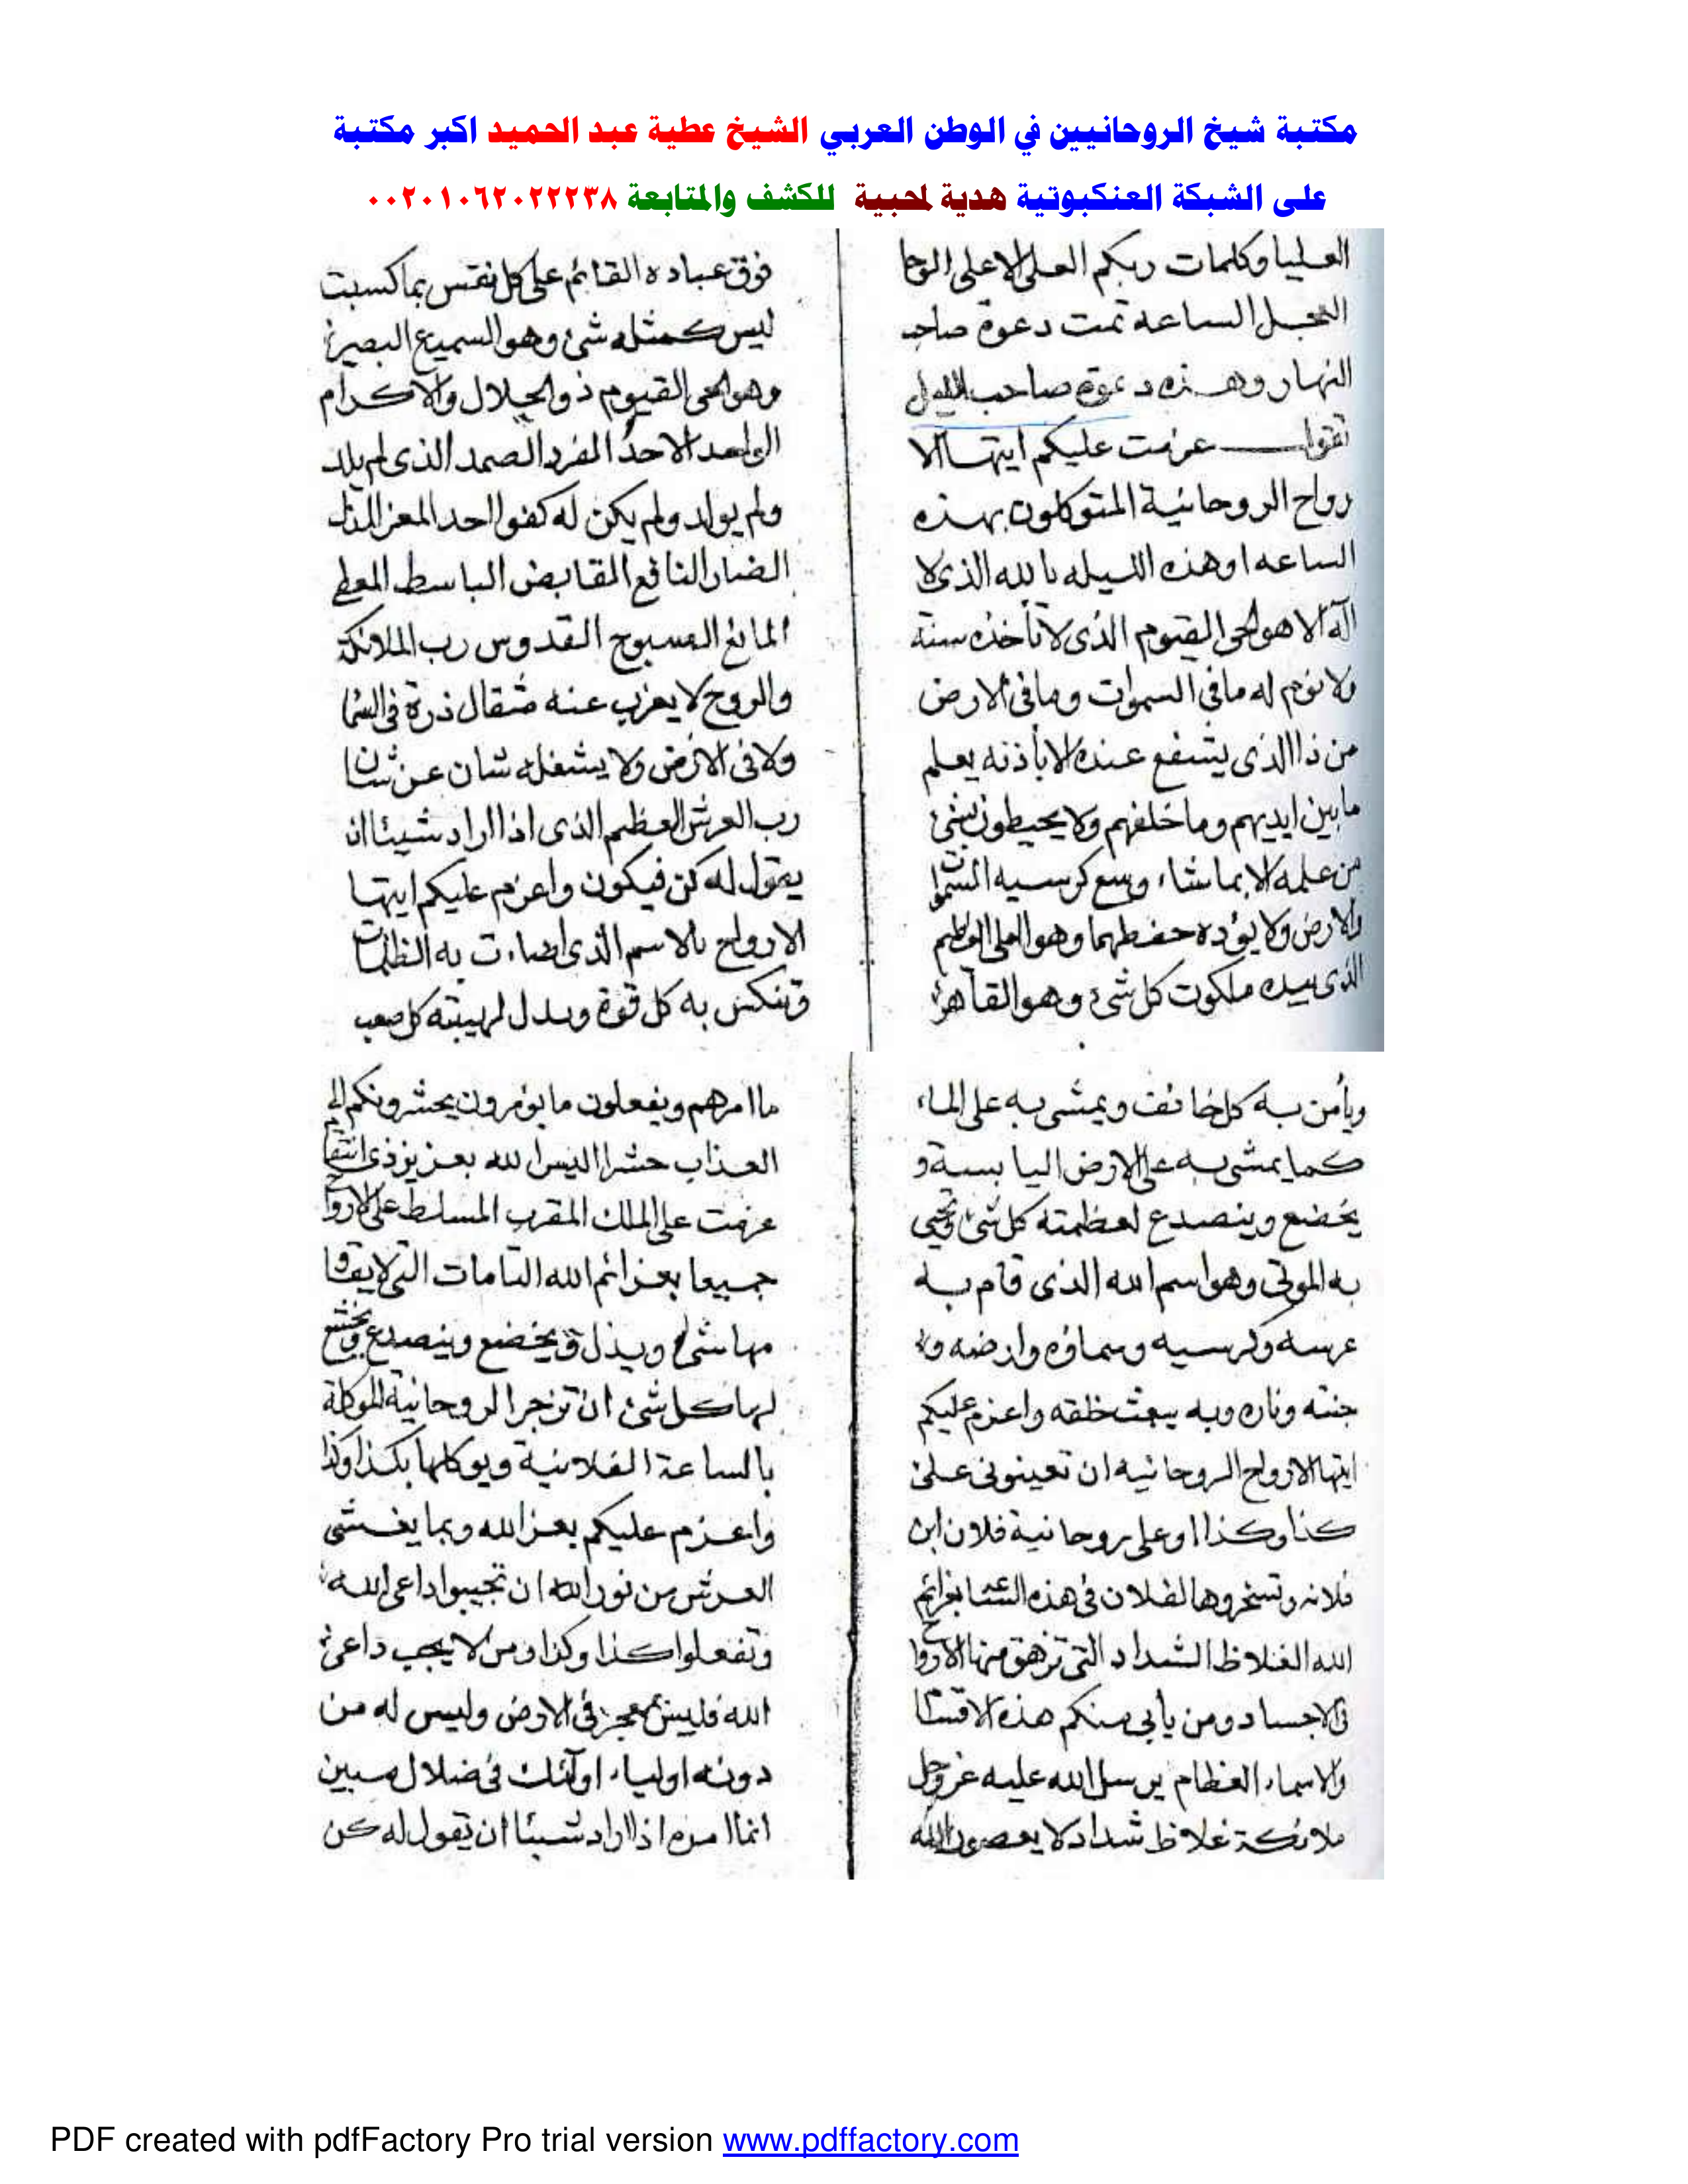 مكتبة شيخ الروحانيين في الوطن العربي الشيخ عطية عبد الحميد اكبر مكتبة
على الشبكة العنكبوتية هدية لمحبية للكشف والمتابعة ٠٠٢٠١٠٦٢٠٢٢٢٣٨
العليا وكلمات ربكم العلى الاعلى الوحا
العجل الساعه تمت دعوة صاحب
النهار وهذه دعوة صاحب الليل
تقول عزمت عليكم ايتها الا
رواح الروحانية المتوكلون بهذه
الساعه او هذه الليله بالله الذى لا
اله الا هو الحى القيوم الذى لا تأخذه سنة
ولا نوم له ما في السموات وما فى الارض
من ذا الذى يشفع عنده الا بأذنه يعلم
ما بين ايديهم وما خلفهم ولا يحيطون بشئ
من علمه الا بما شاء وسع كرسيه السموات
والارض ولا يؤده حفظهما وهو العلى العظيم
الذى بيده ملكوت كل شئ وهو القاهر
فوق عباده القائم على كل نفس بما كسبت
ليس كمثله شئ وهو السميع البصير
وهو الحى القيوم ذو الجلال والاكرام
الواحد الاحد الفرد الصمد الذى لم يلد
ولم يولد ولم يكن له كفوا احد المعز المذل
الضار النافع القابض الباسط المعطى
المانع السبوح القدوس رب الملائكة
والروح لا يعزب عنه مثقال ذرة فى السما
ولا فى الارض ولا يشغله شان عن شان
رب العرش العظيم الذى اذا اراد شيئا ان
يقول له كن فيكون واعزم عليكم ايتها
الارواح بالاسم الذى اضاءت به الظلمات
وتنكس به كل قوة وبدل لهيبته كل صعب
ويأمن به كل خائف ويمشى به على الماء
كما يمشى به على الارض اليابسة و
يخضع وينصدع لعظمته كل شئ ويحيى
به الموتى وهو اسم الله الذى قام به
عرسه وكرسيه وسماؤه وارضه و
جنته وناره وبه يبعث خلقه واعزم عليكم
ايتها الارواح الروحانيه ان تعينونى على
كذا وكذا او على روحانية فلان ابن
فلانه وتسخروها لفلان فى هذه الساعة بعزائم
الله الغلاظ الشداد التى تزهق منها الارواح
فى الاجساد ومن يأبى منكم هذه الاقسام
والاسماء العظام يرسل الله عليه عز وجل
ملائكة غلاظ شداد لا يعصون الله
ما امرهم ويفعلون ما يؤمرون يحشرونكم الى
العذاب حشرا اليس الله بعزيز ذى انتقام
عزمت على الملك المقرب المسلط على الارواح
جميعا بعزائم الله التامات التى لا يقاو
مها شئ ويذل ويخضع وينصدع ويخشع
لها كل شئ ان تزجر الروحانية الموكلة
بالساعة الفلانية ويوكلها بكذا وكذا
واعزم عليكم بعز الله وبما يغشى
العرش من نور الله ان تجيبوا داعى الله
وتفعلوا كذا وكذا ومن لا يجب داعى
الله فليس بمعجز فى الارض وليس له من
دونه اولياء اولئك فى ضلال مبين
انما امره اذا اراد شيئا ان يقول له كن
PDF created with pdfFactory Pro trial version www.pdffactory.com